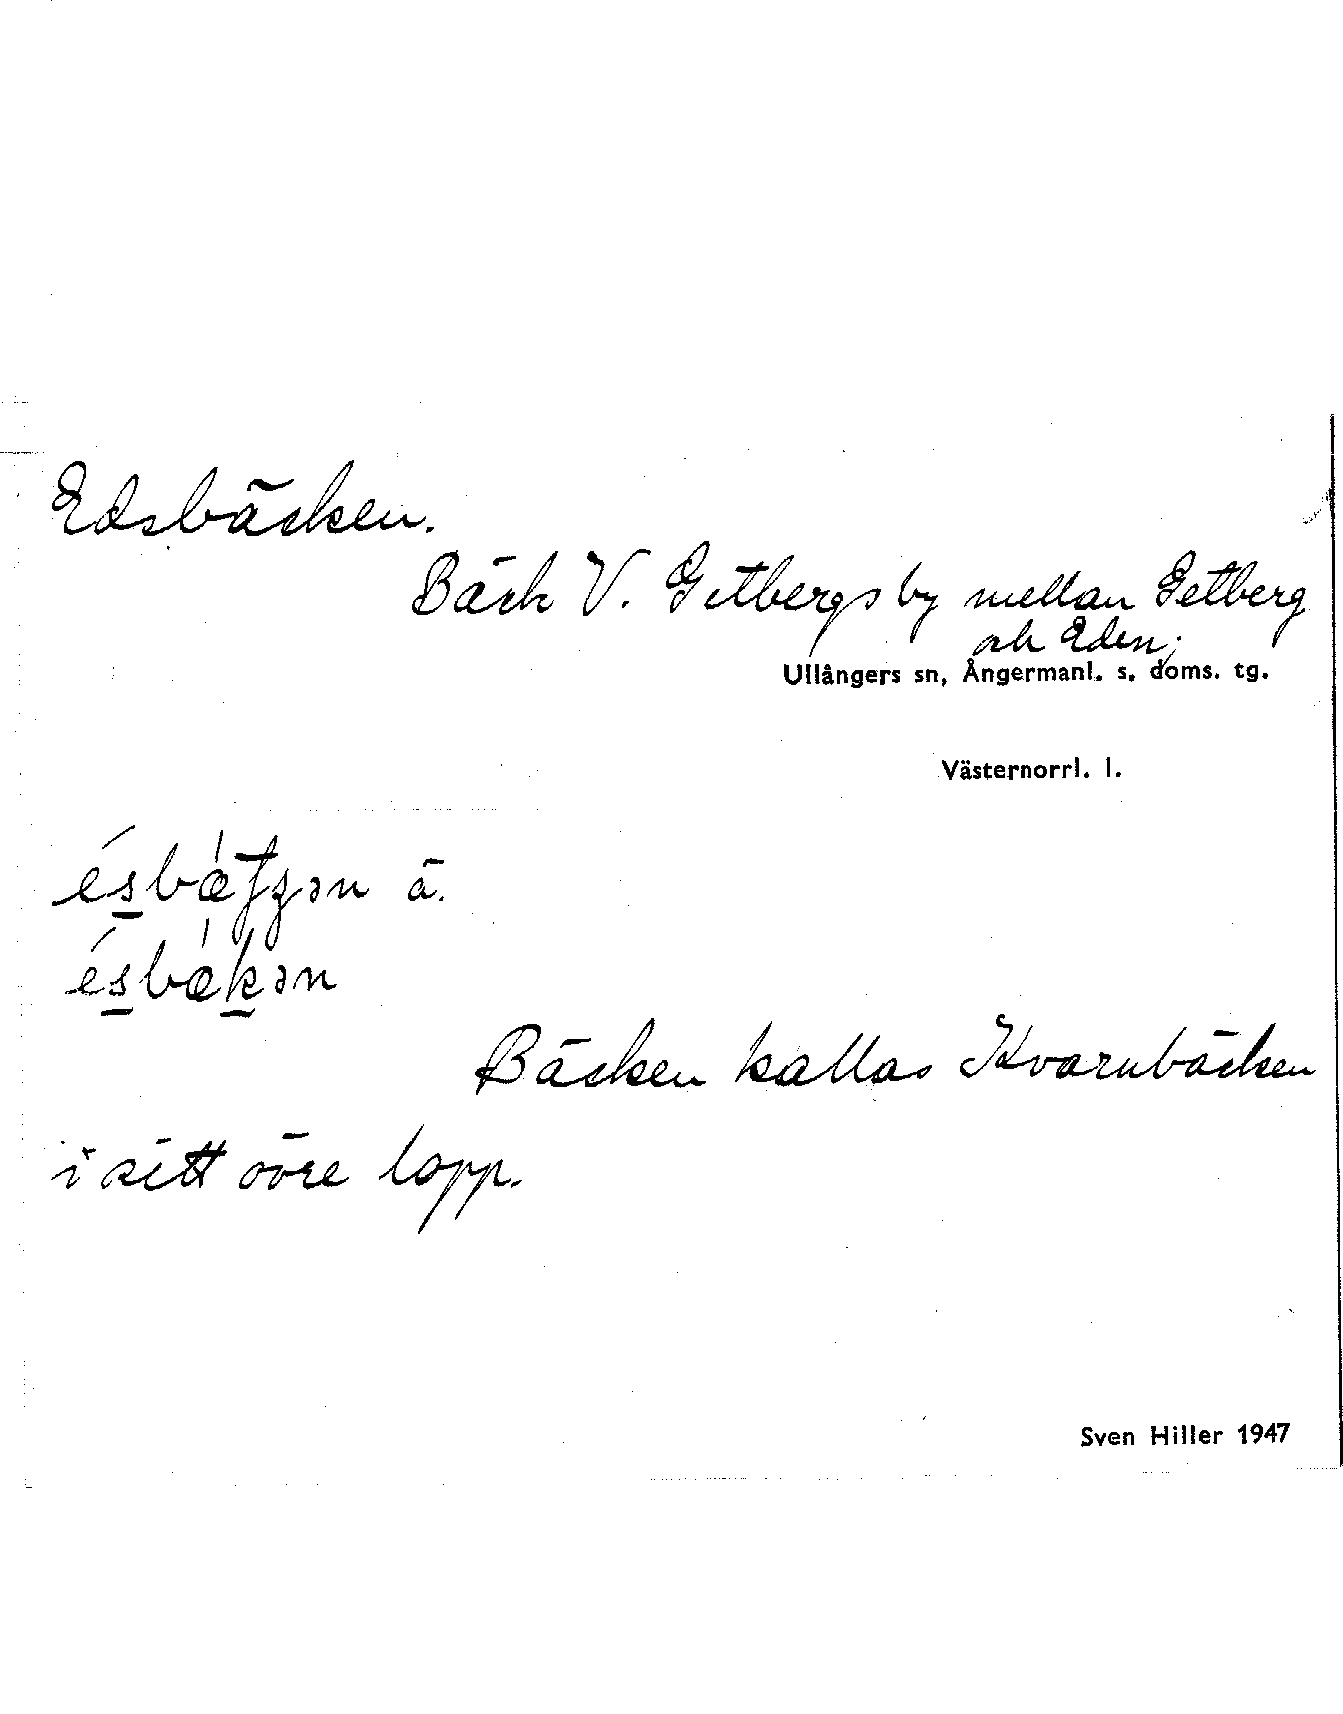 Edsbäcken.
Bäck V. Getbergs by mellan Getberg
och Eden;
Ullångers sn, Ångermanl. s. doms. tg.
Västernorrl. l.
ä.
Bäcken kallas Kvarnbäcken
i sitt övre lopp.
Sven Hiller 1947